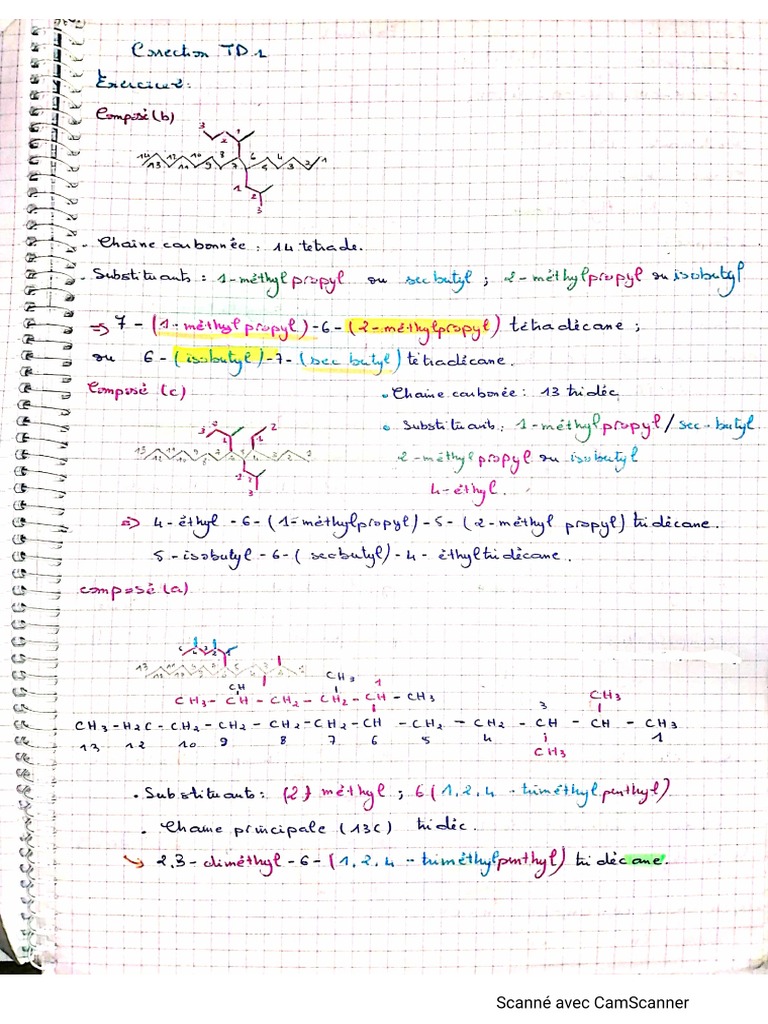 Correction TD1
Exercice 2:
Composé (b)
3 2 1
14 13 12 11 10 9 8 7 6 5 4 3 2 1
1 2 3
. Chaine carbonnée : 14 tétrade.
. Substituants : 1-méthylpropyl ou sec butyl ; 2-méthylpropyl ou isobutyl
⇒ 7-(1-méthylpropyl)-6-(2-méthylpropyl) tétradécane ;
ou 6-(isobutyl)-7-(sec butyl) tétradécane.
Composé (c)
• Chaine carbonée : 13 tridéc
• Substituants : 1-méthylpropyl/sec-butyl.
2-méthylpropyl ou isobutyl
4-éthyl.
⇒ 4-éthyl-6-(1-méthylpropyl)-5-(2-méthyl propyl) tridécane.
5-isobutyl-6-(secbutyl)-4-éthyltridécane.
composé (a)
CH CH3 1
CH3 - CH - CH2 - CH2 - CH - CH3
3 CH3
CH3 - H2C - CH2 - CH2 - CH2 - CH2 - CH - CH2 - CH2 - CH - CH - CH3
13 12 10 9 8 7 6 5 4 1
CH3
. Substituants : (2) méthyl ; 6(1,2,4-triméthylpenthyl)
. Chaine principale (13C) tridéc.
↪ 2,3-diméthyl-6-(1,2,4-triméthylpenthyl) tridécane.
Scanné avec CamScanner